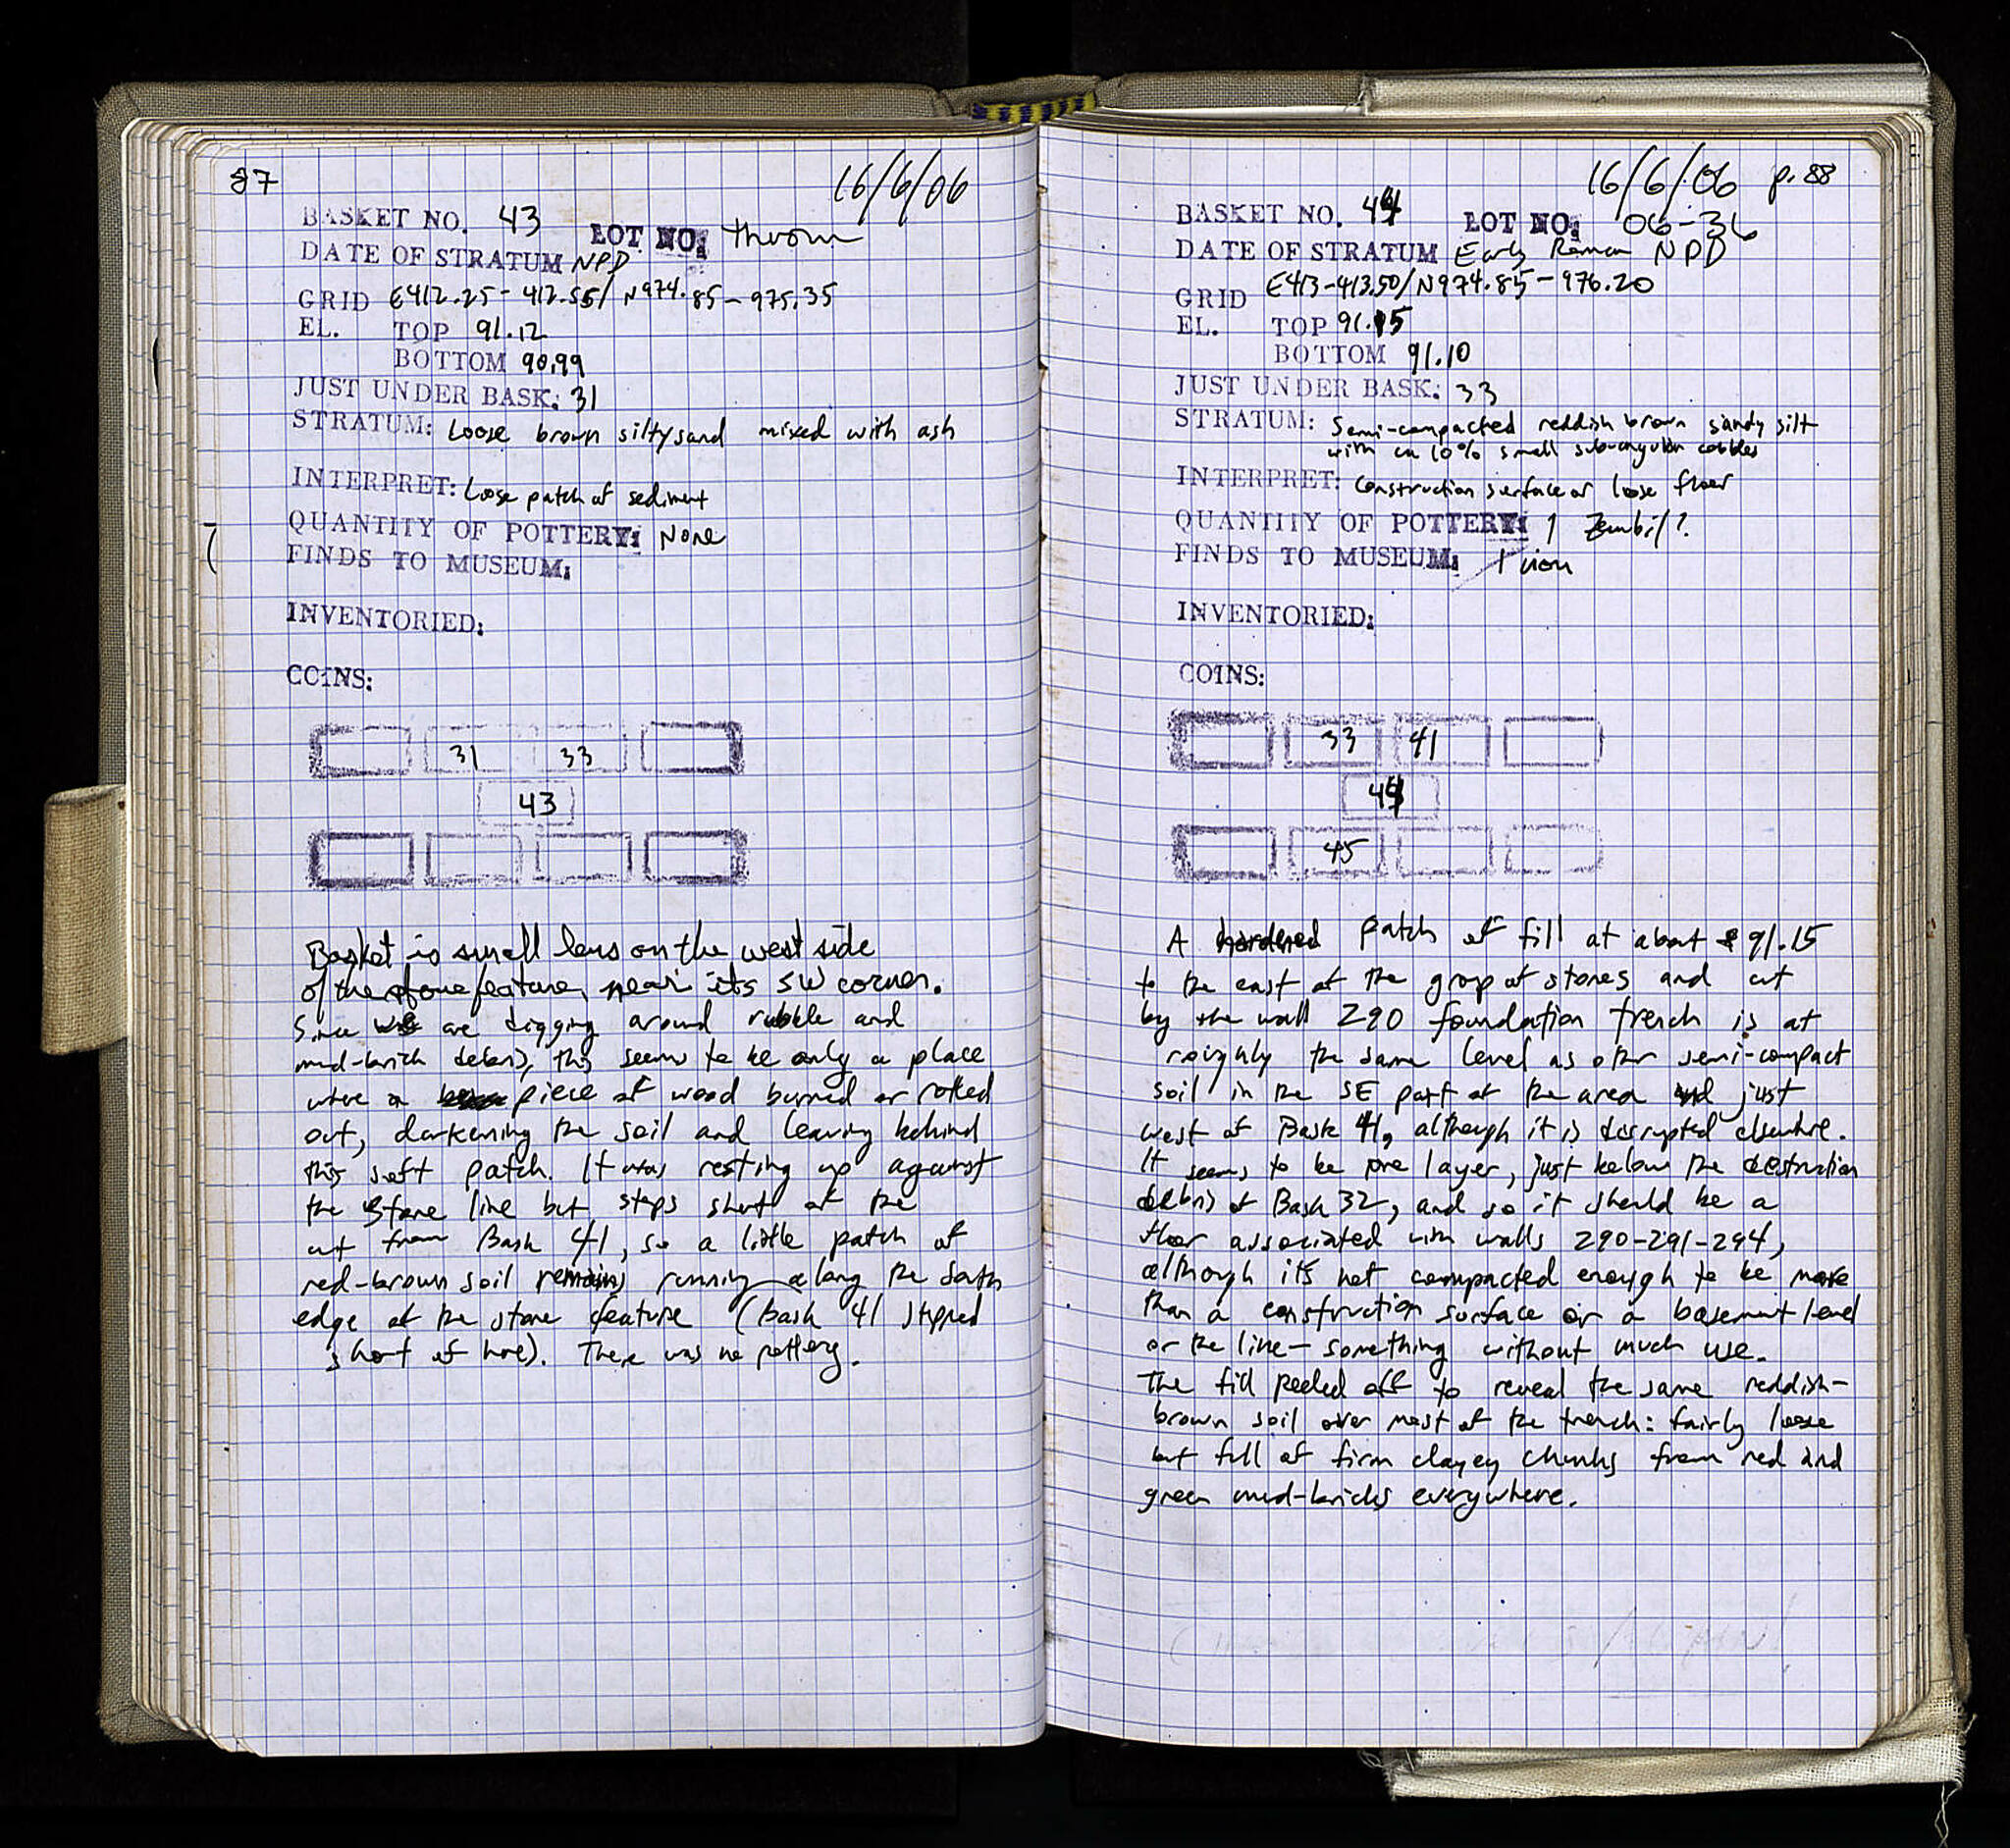 87
16/6/06
BASKET NO. 43 LOT NO: thrown
DATE OF STRATUM NPD
GRID E412.25-412.55/ N974.85-975.35
EL. TOP 91.12
BOTTOM 90.99
JUST UNDER BASK: 31
STRATUM: Loose brown silty sand mixed with ash
INTERPRET: Loose patch of sediment
QUANTITY OF POTTERY: None
FINDS TO MUSEUM:
INVENTORIED:
COINS:
31 33
43
Basket is small lens on the west side
of the stone feature, near its SW corner.
Since we are digging around rubble and
mud-brick debris, this seems to be only a place
where a piece of wood burned or rotted
out, darkening the soil and leaving behind
this soft patch. It was resting up against
the stone line but stops short of the
cut from Bask 41, so a little patch of
red-brown soil remains running along the south
edge of the stone feature (Bask 41 stopped
short of here). There was no pottery.
16/6/06 p. 88
BASKET NO. 44 LOT NO: 06-36
DATE OF STRATUM Early Roman NPD
GRID E413-413.50/N974.85-976.20
EL. TOP 91.15
BOTTOM 91.10
JUST UNDER BASK: 33
STRATUM: Semi-compacted reddish brown sandy silt
with ca 10% small subangular cobbles
INTERPRET: Construction surface or loose floor
QUANTITY OF POTTERY: 1 Zembil?
FINDS TO MUSEUM: 1 iron
INVENTORIED:
COINS:
33 41
44
45
A hardened patch of fill at about 91.15
to the east of the group of stones and cut
by the wall 290 foundation trench is at
roughly the same level as other semi-compact
soil in the SE part of the area and just
west of Bask 41, although it is disrupted elsewhere.
It seems to be one layer, just below the destruction
debris of Bask 32, and so it should be a
floor associated with walls 290-291-294,
although it's not compacted enough to be more
than a construction surface or a basement level
or the like - something without much use.
The fill peeled off to reveal the same reddish-
brown soil over most of the trench: fairly loose
but full of firm clayey chunks from red and
green mud-bricks everywhere.